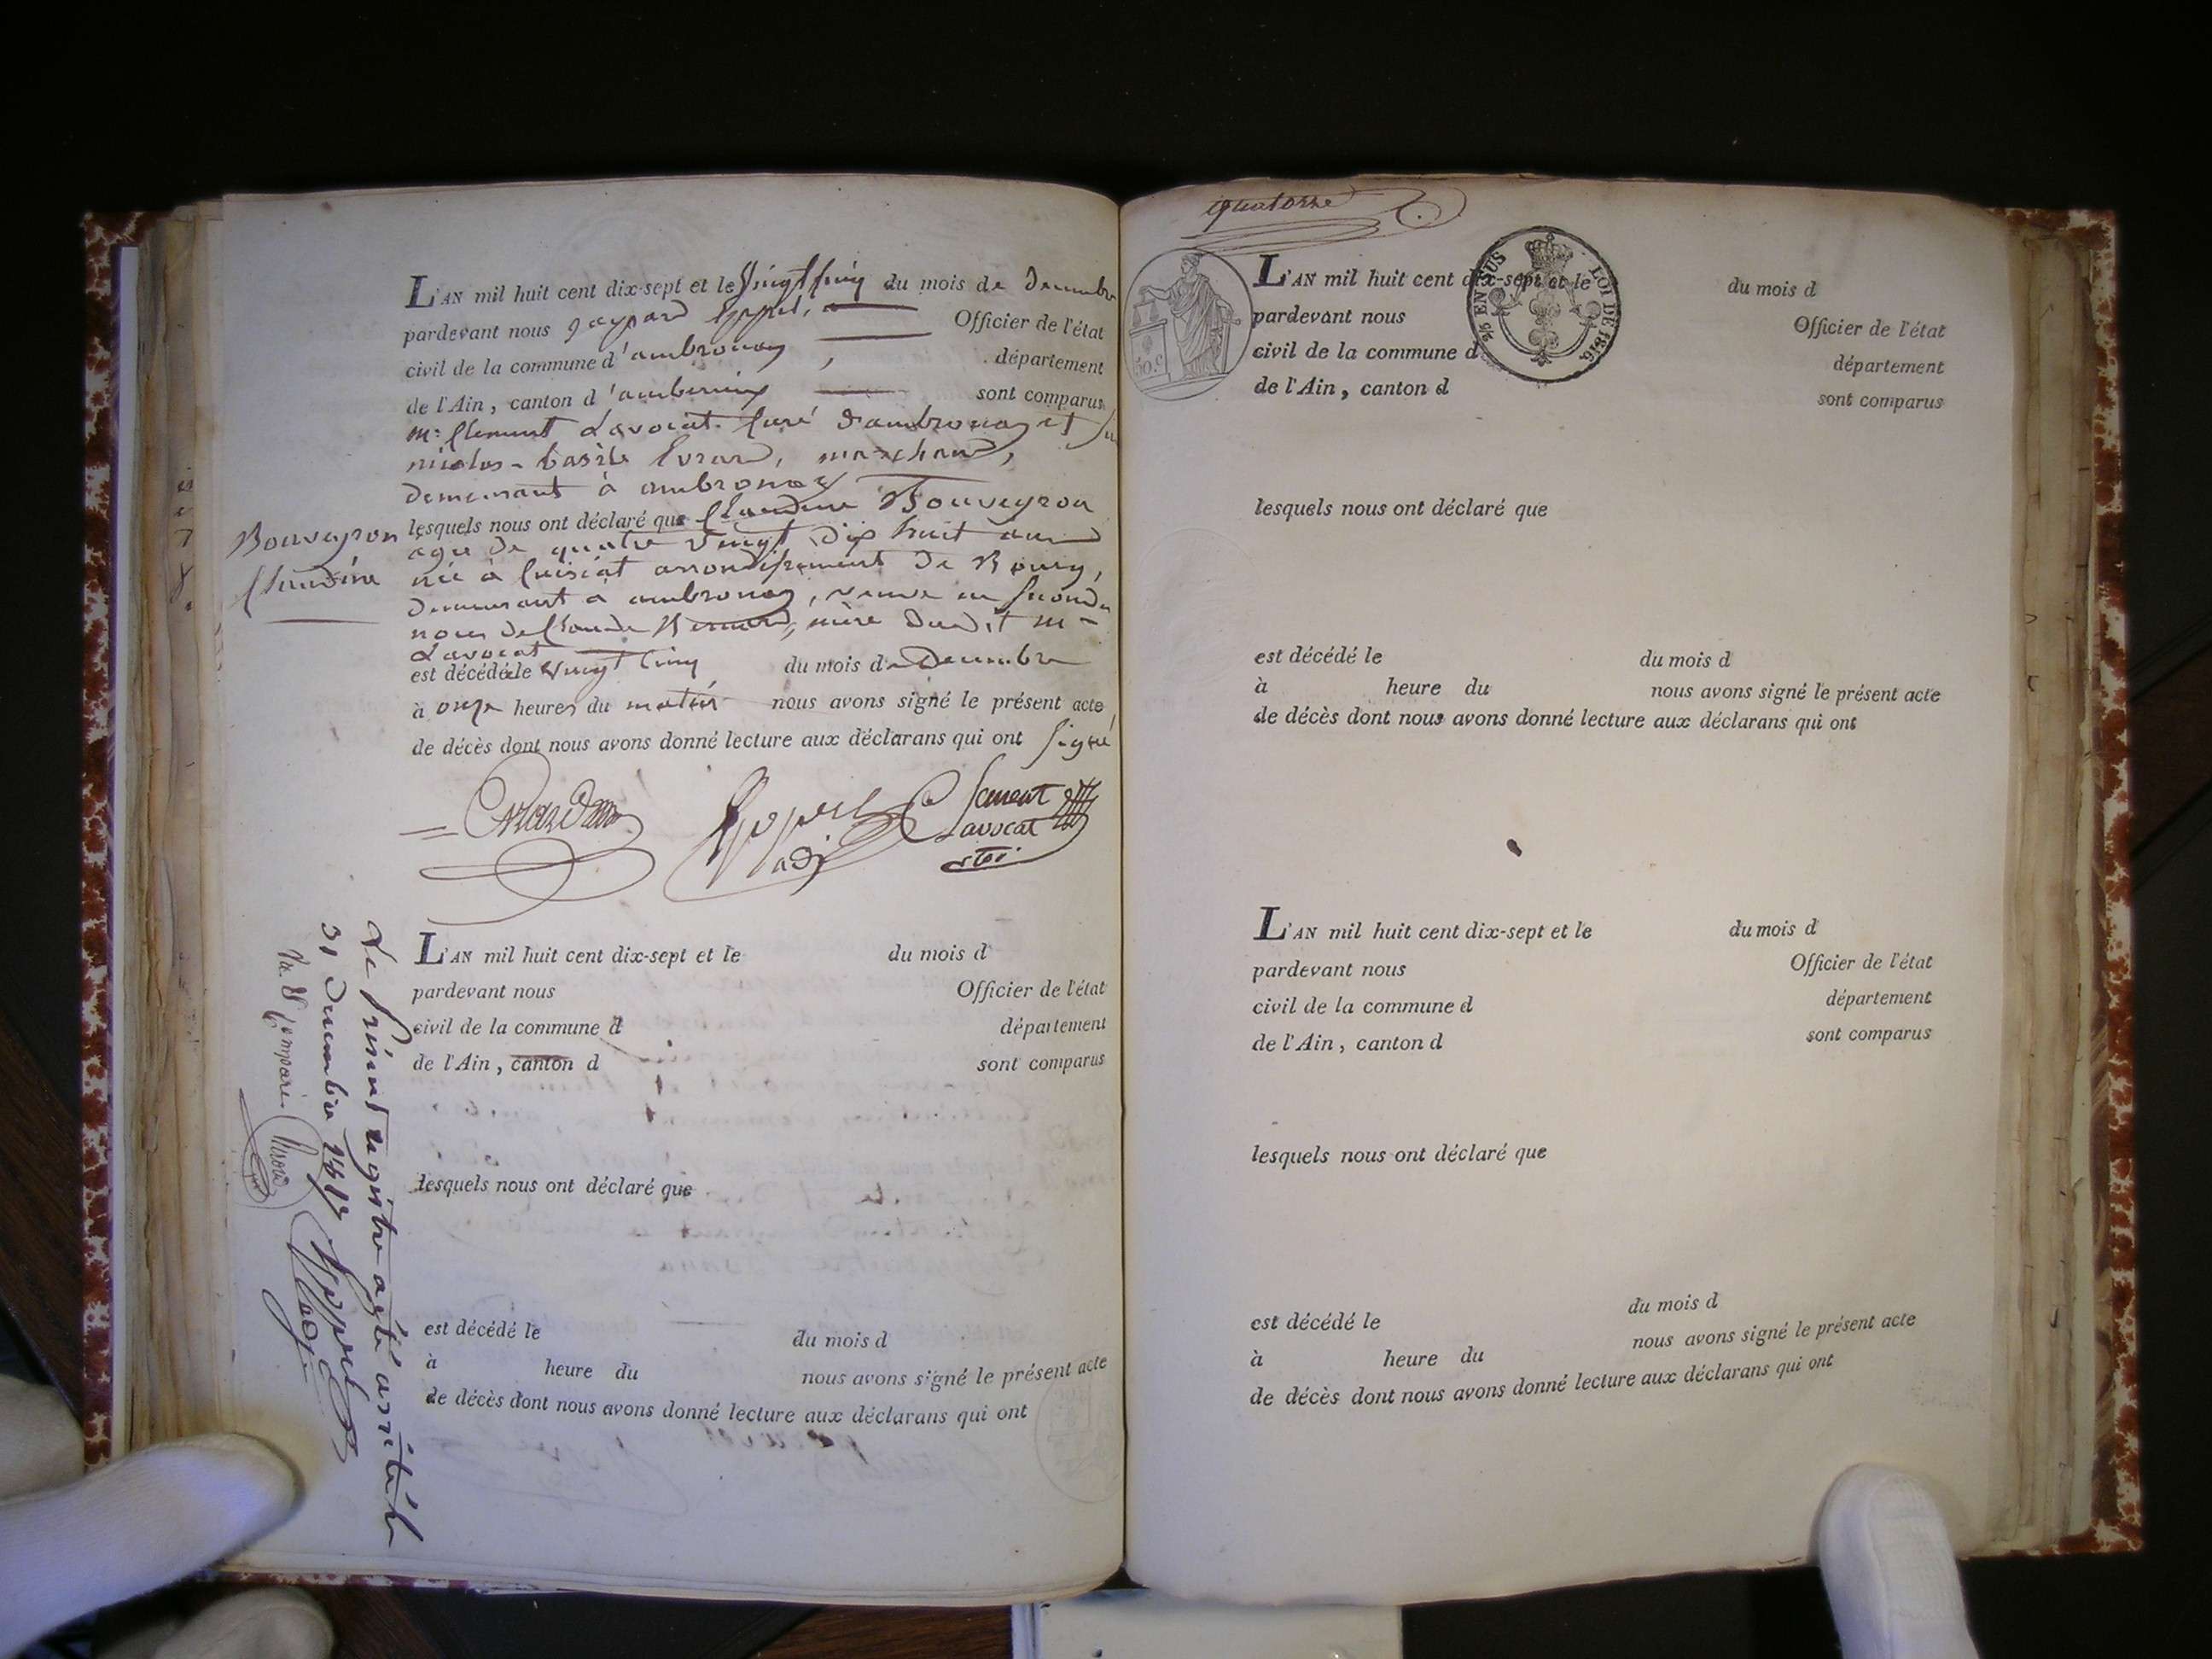 Bouveyron
Claudine
L'AN mil huit cent dix-sept et le vingt cinq du mois de decembre
pardevant nous gaspard Officier de l'état
civil de la commune d'ambronay département
de l'Ain, canton d'amberieux sont comparus
mr. Clement Lavocat curé d'ambronay et
nicolas-basile Evrard, marchand,
demeurant à ambronay
lesquels nous ont déclaré que Claudine Bouveyron
agée de quatre vingt dix huit ans
née à Cuisiat arrondissement de Bourg,
demeurant à ambronay, veuve en seconde
noces de Claude Bernard, mère dudit mr
Lavocat
est décédée le vingt cinq du mois de Decembre
à onze heures du matin nous avons signé le présent acte
de décès dont nous avons donné lecture aux déclarans qui ont signé
Evrard Clement
adj. Lavocat
L'AN mil huit cent dix-sept et le du mois d
pardevant nous Officier de l'état
civil de la commune d département
de l'Ain, canton d sont comparus
lesquels nous ont déclaré que
est décédé le du mois d
à heure du nous avons signé le présent acte
de décès dont nous avons donné lecture aux déclarans qui ont
Le présent registre a été arrêté le
31 Decembre 1817
adj.
quatorze
50.c
% EN SUS LOI DE 1816.
L'AN mil huit cent dix-sept et le du mois d
pardevant nous Officier de l'état
civil de la commune d département
de l'Ain, canton d sont comparus
lesquels nous ont déclaré que
est décédé le du mois d
à heure du nous avons signé le présent acte
de décès dont nous avons donné lecture aux déclarans qui ont
L'AN mil huit cent dix-sept et le du mois d
pardevant nous Officier de l'état
civil de la commune d département
de l'Ain, canton d sont comparus
lesquels nous ont déclaré que
est décédé le du mois d
à heure du nous avons signé le présent acte
de décès dont nous avons donné lecture aux déclarans qui ont